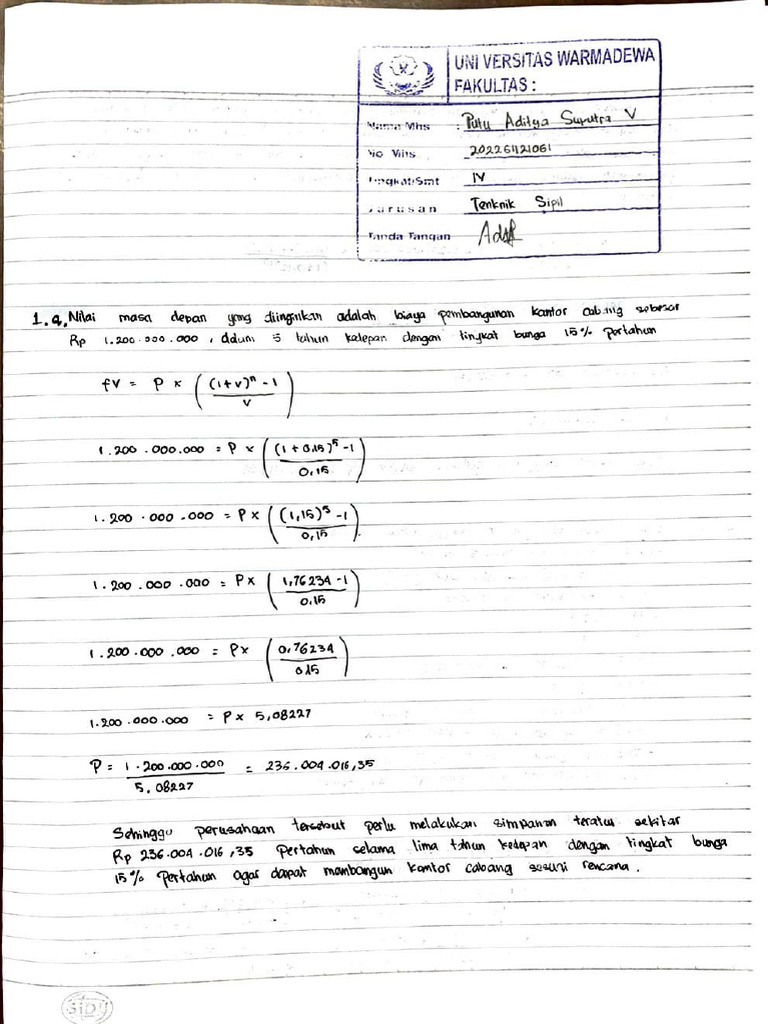 UNIVERSITAS WARMADEWA
FAKULTAS :
Nama Mhs : Putu Aditya Suputra V
No Mhs 202261121061
Tingkat/Smt IV
Jurusan Tenknik Sipil
Tanda Tangan
1.a. Nilai masa depan yang diinginkan adalah biaya pembangunan kantor cabang sebesar
Rp 1.200.000.000, dalam 5 tahun kedepan dengan tingkat bunga 15% pertahun
fv = P × ((1+v)^n - 1 / v)
1.200.000.000 = P × ((1 + 0.15)^5 - 1 / 0.15)
1.200.000.000 = P × ((1,15)^5 - 1 / 0,15)
1.200.000.000 = P × (1,76234 - 1 / 0.15)
1.200.000.000 = P × (0,76234 / 0.15)
1.200.000.000 = P × 5,08227
P = 1.200.000.000 / 5,08227 = 236.004.016,35
Sehingga perusahaan tersebut perlu melakukan simpanan teratur sekitar
Rp 236.004.016,35 pertahun selama lima tahun kedepan dengan tingkat bunga
15% pertahun agar dapat membangun kantor cabang sesuai rencana.
SIDU